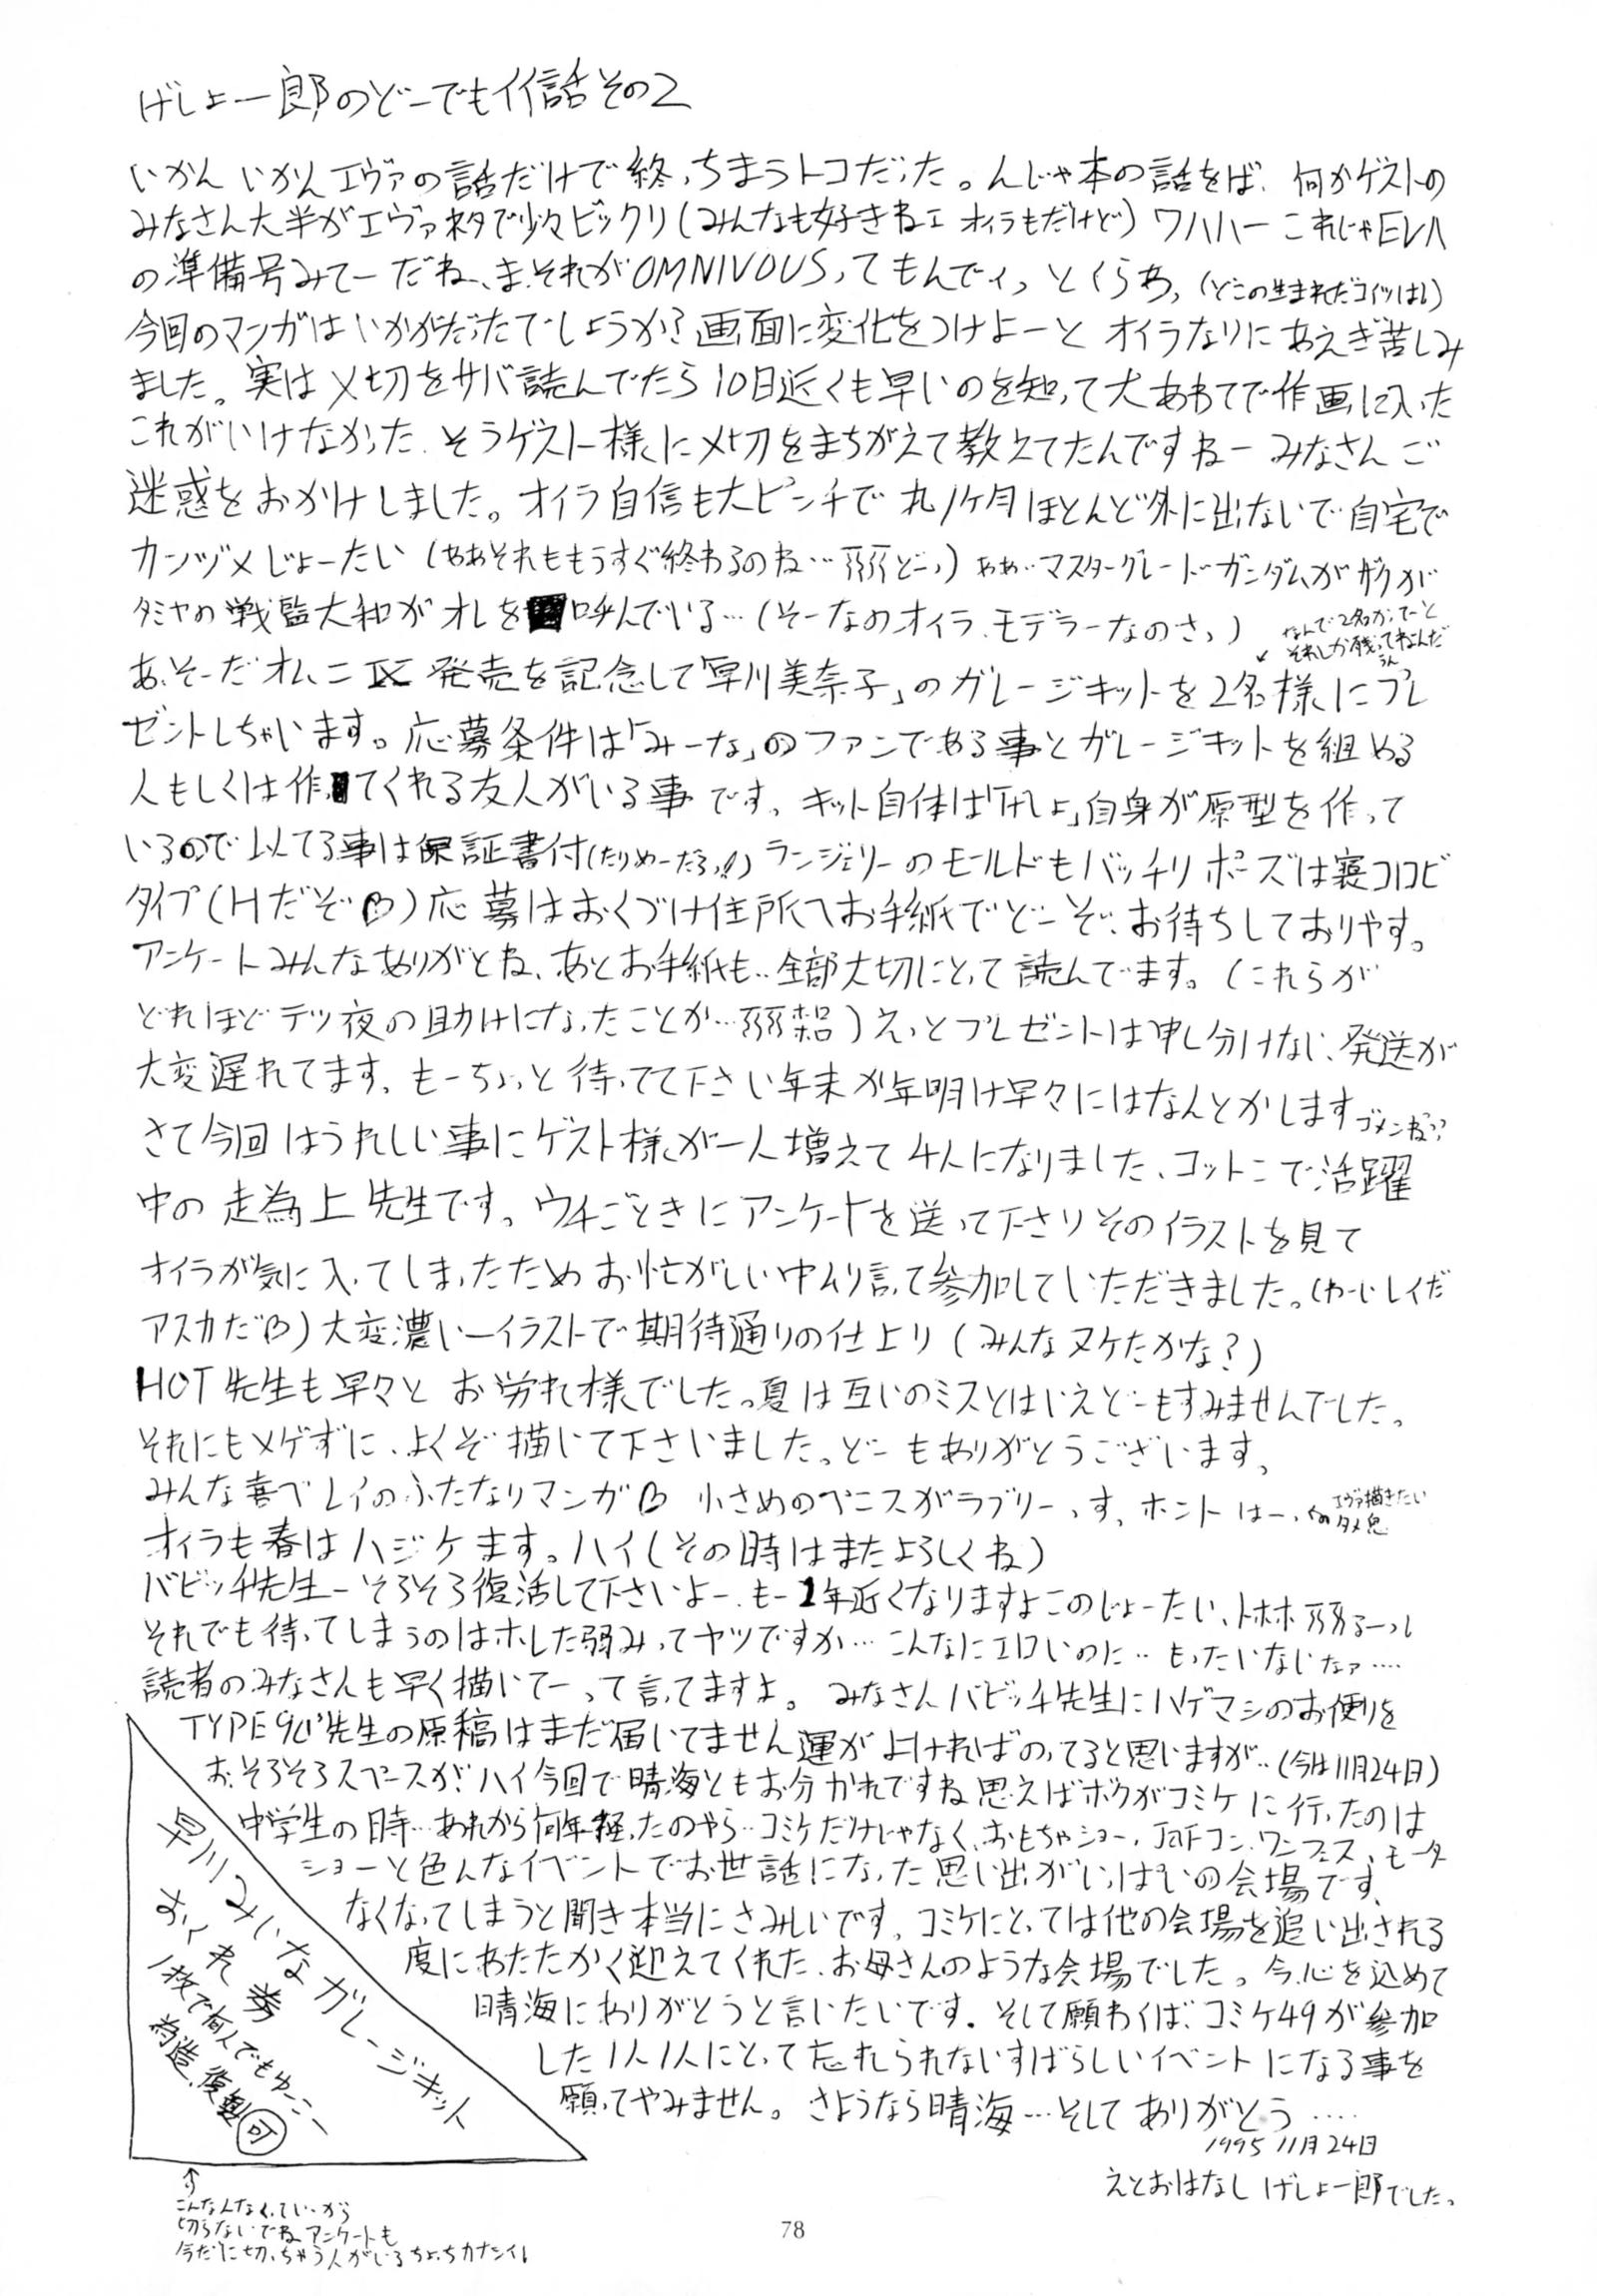 げしょ一郎のどーでもイイ話その2
いかんいかんエヴァの話だけで終っちまうトコだった。んじゃ本の話をば、何かゲストの
みなさん大半がエヴァネタで少々ビックリ(みんなも好きねェ オイラもだけど)ワハハー これじゃEVA
の準備号みてーだね、まそれがOMNIVOUSってもんでィっとくらあ,(どこの生まれだコイツは!)
今回のマンガはいかがだったでしょうか?画面に変化をつけよーと オイラなりにあえぎ苦しみ
ました。実は〆切をサバ読んでたら10日近くも早いのを知って大あわてで作画に入った
これがいけなかった、そうゲスト様に〆切をまちがえて教えてたんですねー みなさんご
迷惑をおかけしました。オイラ自信も大ピンチで丸1ケ月ほとんど外に出ないで自宅で
カンヅメじょーたい(ああそれももうすぐ終わるのね…号号どーっ)ああ‥マスターグレードガンダムがザクが
タミヤの戦監大和がオレを呼んでいる…(そーなのオイラ、モデラーなのさっ)
なんで2名かってーと
それしか残ってねーんだ
あ、そーだオムニⅨ発売を記念して「早川美奈子」のガレージキットを2名様にプレ
ゼントしちゃいます。応募条件は「みーな」のファンである事とガレージキットを組める
人もしくは作ってくれる友人がいる事です、キット自体は「げしょ」自身が原型を作って
いるので似てる事は保証書付(たりめーだろっ!!)ランジェリーのモールドもバッチリポーズは寝コロビ
タイプ(Hだぞ♡)応募はおくづけ住所へお手紙でどーぞ、お待ちしておりやす。
アンケートみんなありがとね、あとお手紙も‥全部大切にとって読んでます。(これらが
どれほどテツ夜の助けになったことか…)えっとプレゼントは申し分けない、発送が
大変遅れてます、もーちょっと待ってて下さい年末か年明け早々にはなんとかしますゴメンね??
さて今回はうれしい事にゲスト様が一人増えて4人になりました、コットンコで活躍
中の走為上先生です。ウチごときにアンケートを送って下さりそのイラストを見て
オイラが気に入ってしまったためお忙がしい中ムリ言って参加していただきました。(わーいレイだ
アスカだ♡)大変濃いーイラストで期待通りの仕上り(みんなヌケたかな?)
HOT先生も早々とお労れ様でした。夏は互いのミスとはいえどーもすみませんでした。
それにもメゲずに、よくぞ描いて下さいました。どーもありがとうございます、
みんな喜べレイのふたなりマンガ♡ 小さめのペニスがラブリーっす、ホントはー、
エヴァ描きたい
オイラも春はハジケます。ハイ(その時はまたよろしくね)
バビッチ先生ーそろそろ復活して下さいよー、もー1年近くなりますよこのじょーたい、トホホ
それでも待ってしまうのはホレた弱みってヤツですか…こんなにエロいのに‥もったいないなァ‥‥
読者のみなさんも早く描いてーって言ってますよ。みなさんバビッチ先生にハゲマシのお便りを
TYPE90'先生の原稿はまだ届いてません運がよければのってると思いますが‥(今は11月24日)
おっそろそろスペースが!ハイ今回で晴海ともお分かれですね思えばボクがコミケに行ったのは
中学生の時‥あれから何年経ったのやら‥コミケだけじゃなく、おもちゃショー、JAFコン、ワンフェス、モータ
ショーと色んなイベントでお世話になった思い出がいっぱいの会場です、
なくなってしまうと聞き本当にさみしいです、コミケにとっては他の会場を追い出される
度にあたたかく迎えてくれた、お母さんのような会場でした。今、心を込めて
晴海にありがとうと言いたいです。そして願わくば、コミケ49が参加
した1人1人にとって忘れられないすばらしいイベントになる事を
願ってやみません。さようなら晴海…そしてありがとう‥‥
1995 11月24日
えとおはなし げしょ一郎でした。
早川みいなガレージキット
おくれ券
1枚で何人でもゆーこー
為造、複製可
↑
こんなんなくていーから
切らないでね、アンケートも
今だに切っちゃう人がいるちょっちカナシイ!
78